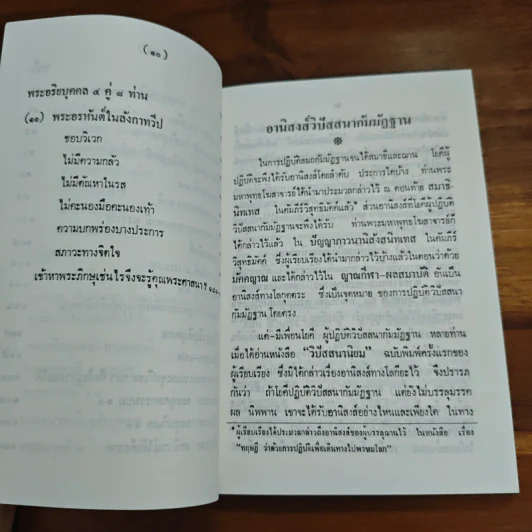 (๑๐)
พระอริยบุคคล ๔ คู่ ๘ ท่าน
(๑๑) พระอรหันต์ในลังกาทวีป
ชอบวิเวก
ไม่มีความกลัว
ไม่มีตัณหาในรส
ไม่คะนองมือคะนองเท้า
ความบกพร่องบางประการ
สภาวะทางจิตใจ
เข้าหาพระภิกษุเช่นไรจึงจะรู้คุณพระศาสนา?
อานิสงส์วิปัสสนากัมมัฏฐาน
ในการปฏิบัติสมถกัมมัฏฐานจนได้สมาธิและฌาน โยคีผู้
ปฏิบัติจะพึงได้รับอานิสงส์โดยลำดับ ประการใดบ้าง ท่านพระ
มหาพุทธโฆสาจารย์ได้นำมาประมวลกล่าวไว้ ณ ตอนท้าย สมาธิ-
นิทเทส ในคัมภีร์วิสุทธิมัคค์แล้ว* ส่วนอานิสงส์ที่โยคีผู้ปฏิบัติ
วิปัสสนากัมมัฏฐานจะพึงได้รับ ท่านพระมหาพุทธโฆสาจารย์ก็
ได้กล่าวไว้แล้ว ใน ปัญญาภาวนานิสังสนิทเทส ในคัมภีร์
วิสุทธิมัคค์ ซึ่งผู้เรียบเรียงได้นำมากล่าวไว้บ้างแล้วในตอนว่าด้วย
มัคคญาณ และได้กล่าวไว้ใน ญาณกีฬา-ผลสมาบัติ อันเป็น
อานิสงส์ทางโลกุตตระ ซึ่งเป็นจุดหมาย ของการปฏิบัติวิปัสสนา
กัมมัฏฐาน โดยตรง
แต่-มีเพื่อนโยคี ผู้ปฏิบัติวิปัสสนากัมมัฏฐาน หลายท่าน
เมื่อได้อ่านหนังสือ "วิปัสสนานิยม" ฉบับพิมพ์ครั้งแรกของ
ผู้เรียบเรียง ซึ่งมิได้กล่าวเรื่องอานิสงส์ทางโลกียะไว้ จึงปรารภ
กันว่า ถ้าโยคีปฏิบัติวิปัสสนากัมมัฏฐาน แต่ยังไม่บรรลุมรรค
ผล นิพพาน เขาจะได้รับอานิสงส์อย่างไหนและเพียงใด ในทาง
* ผู้เรียบเรียงได้ประมวลกล่าวถึงอานิสงส์ของผู้บรรลุฌานไว้ ในหนังสือ เรื่อง
"ทฤษฎี ว่าด้วยการปฏิบัติเพื่อเดินทางไปพรหมโลก"